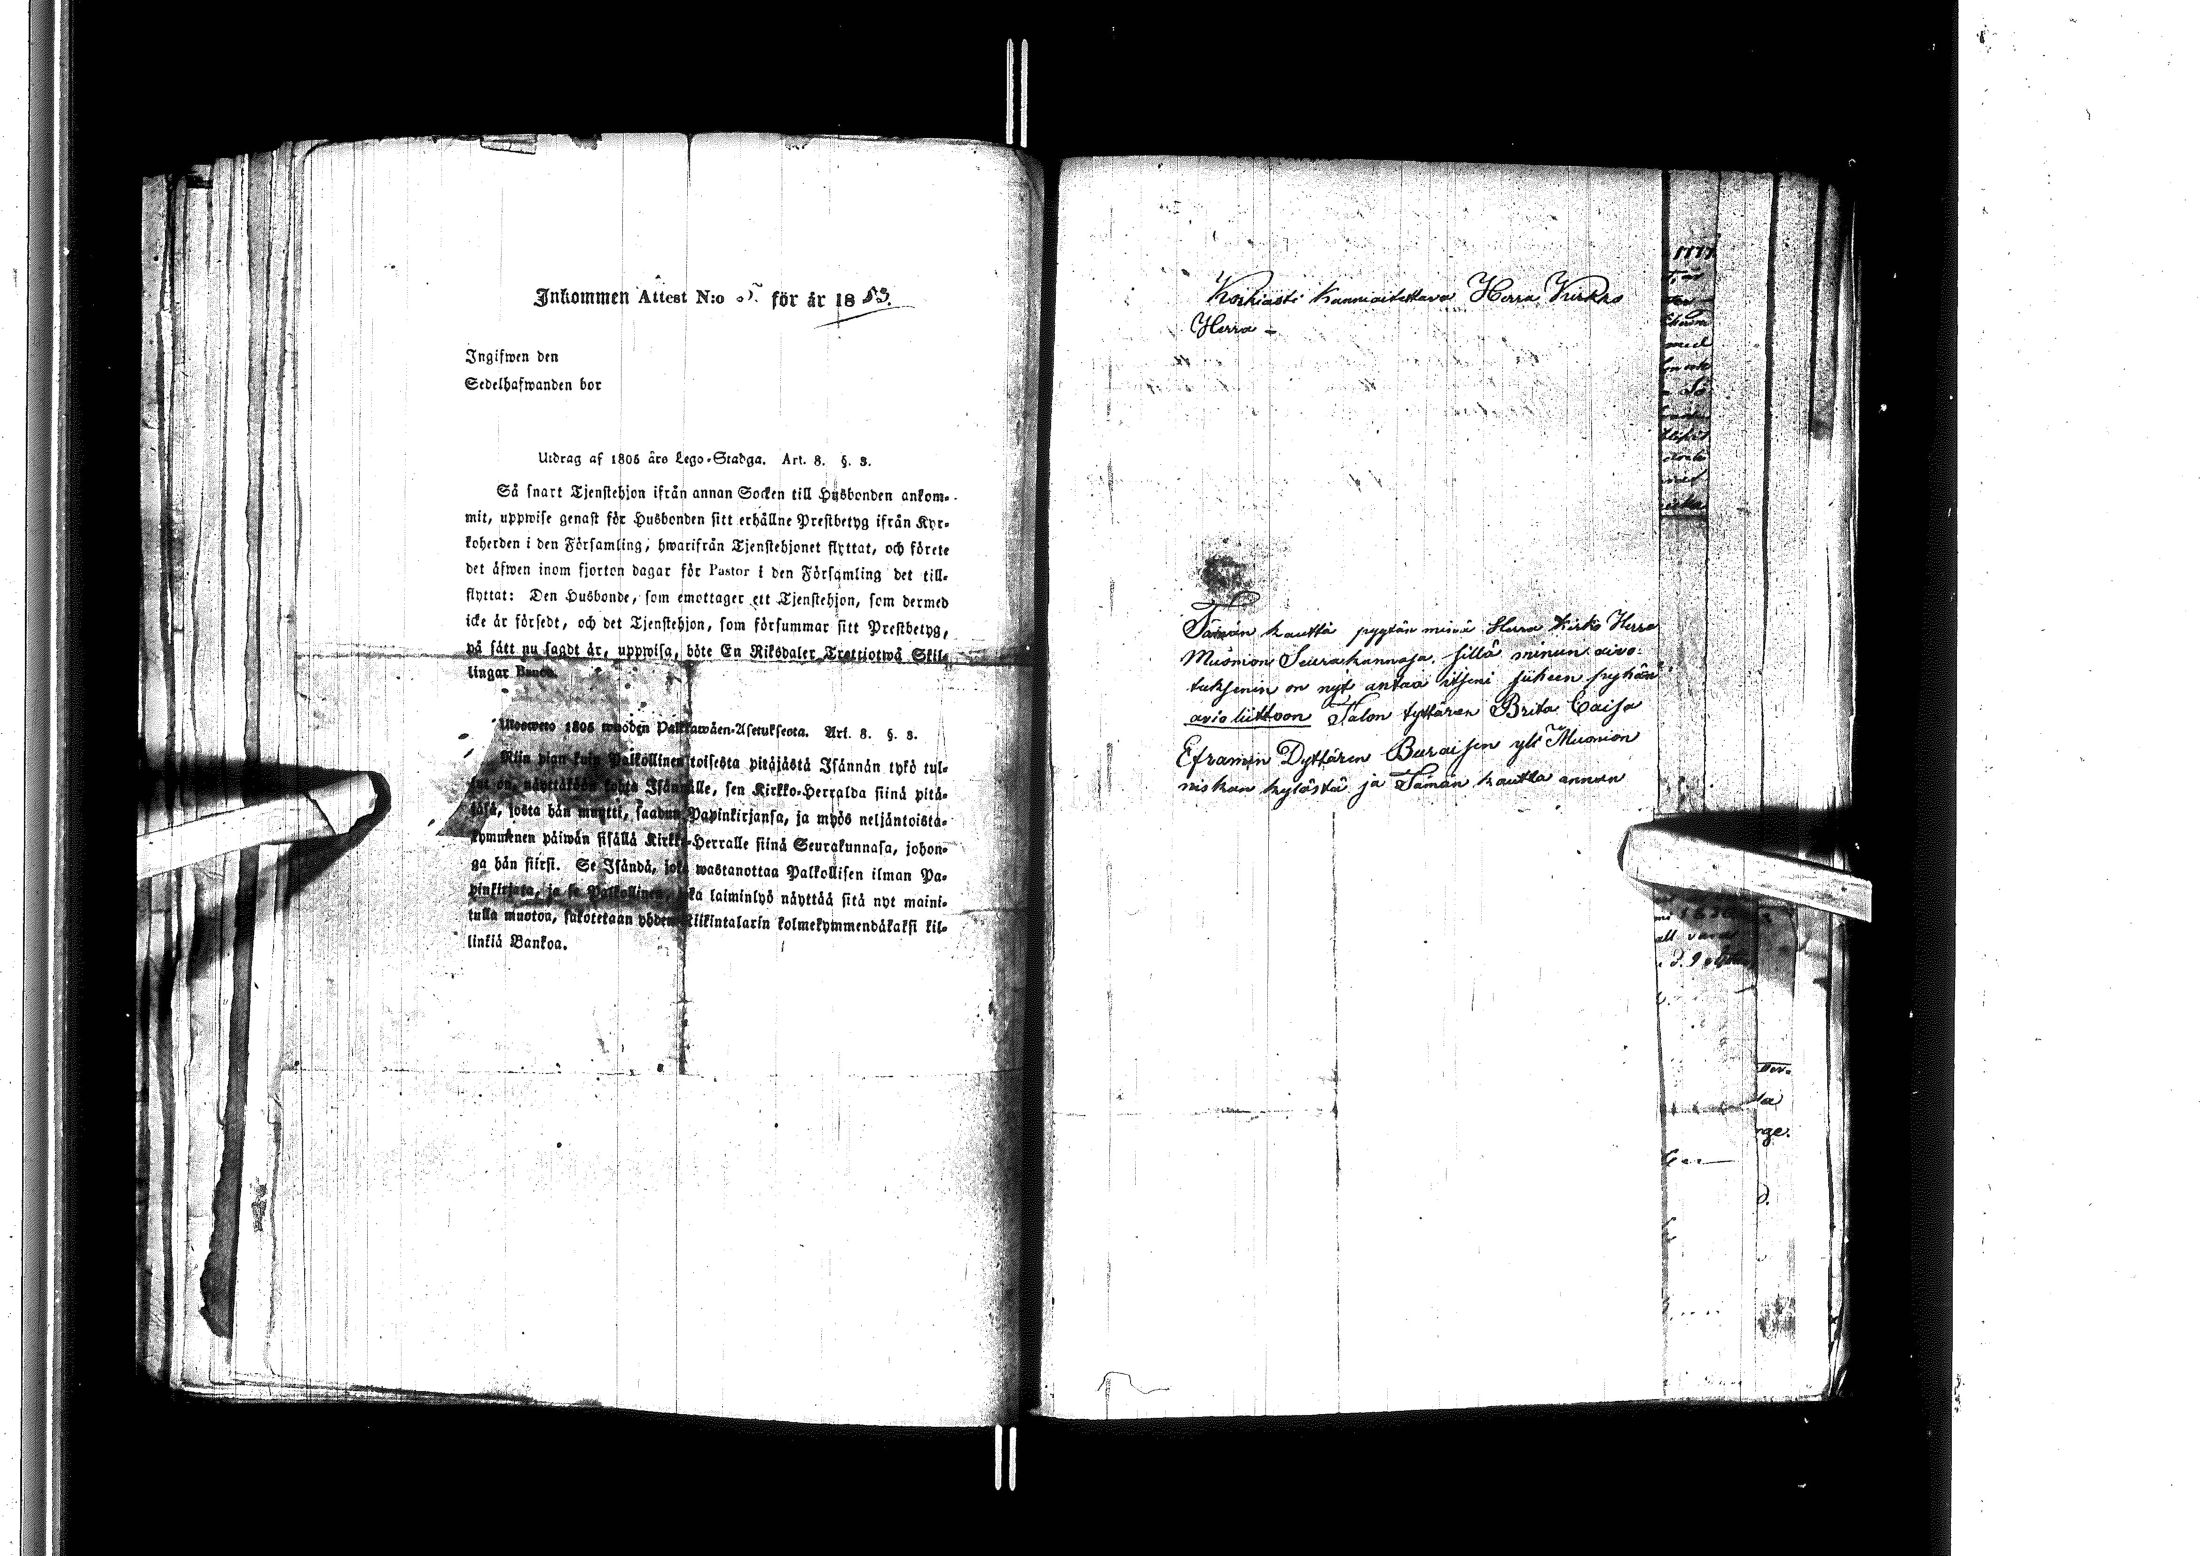 Inkommen Attest N:o 5. för år 1853.
Ingifwen den
Sedelhafwanden bor
Utdrag af 1805 års Lego-Stadga. Art. 8. §. 3.
Så snart Tjenstehjon ifrån annan Socken till Husbonden ankom-
mit, uppwise genast för Husbonden sitt erhållne Prestbetyg ifrån Kyr-
koherden i den Församling, hwarifrån Tjenstehjonet flyttat, och förete
det äfwen inom fjorton dagar för Pastor i den Församling det till-
flyttat: Den Husbonde, som emottager ett Tjenstehjon, som dermed
icke är försedt, och det Tjenstehjon, som försummar sitt Prestbetyg,
på sätt nu sagdt är, uppwisa, böte En Riksdaler Trettiotwå Skil-
lingar Banco.
Ulosweto 1805 wuoden Palkkawäen-Asetuksesta. Art. 8. §. 3.
Niin pian kuin Palkollinen toisesta pitäjästä Isännän tykö tul-
lut on, näyttäköön kohta Isännälle, sen Kirkko-Herralda siinä pitä-
jäsä, josta hän muutti, saadun Papinkirjansa, ja myös neljäntoista-
kymmenen päiwän sisällä Kirkko-Herralle siinä Seurakunnasa, johon-
ga hän siirsi. Se Isändä, joka wastanottaa Palkollisen ilman Pa-
pinkirjata, ja se Palkollinen, joka laiminlyö näyttää sitä nyt maini-
tulla muotoa, sakotetaan yhden Riikintalarin kolmekymmendäkaksi kil-
linkiä Bankoa.
Korkiasti Kunnioitettava Herra Kirkko
Herra -
Tämän kautta pyytän minä Herra Kirko Herra
Muonion Seurakunnasa, sillä minun aivo-
tuksenin on nyt antaa itseni siiheen pyhään
avio liittoon Talon tyttären Brita Caisa
Eframin Dyttären Buraisen yli Muonion
niskan kylästä ja Tämän kautta annan